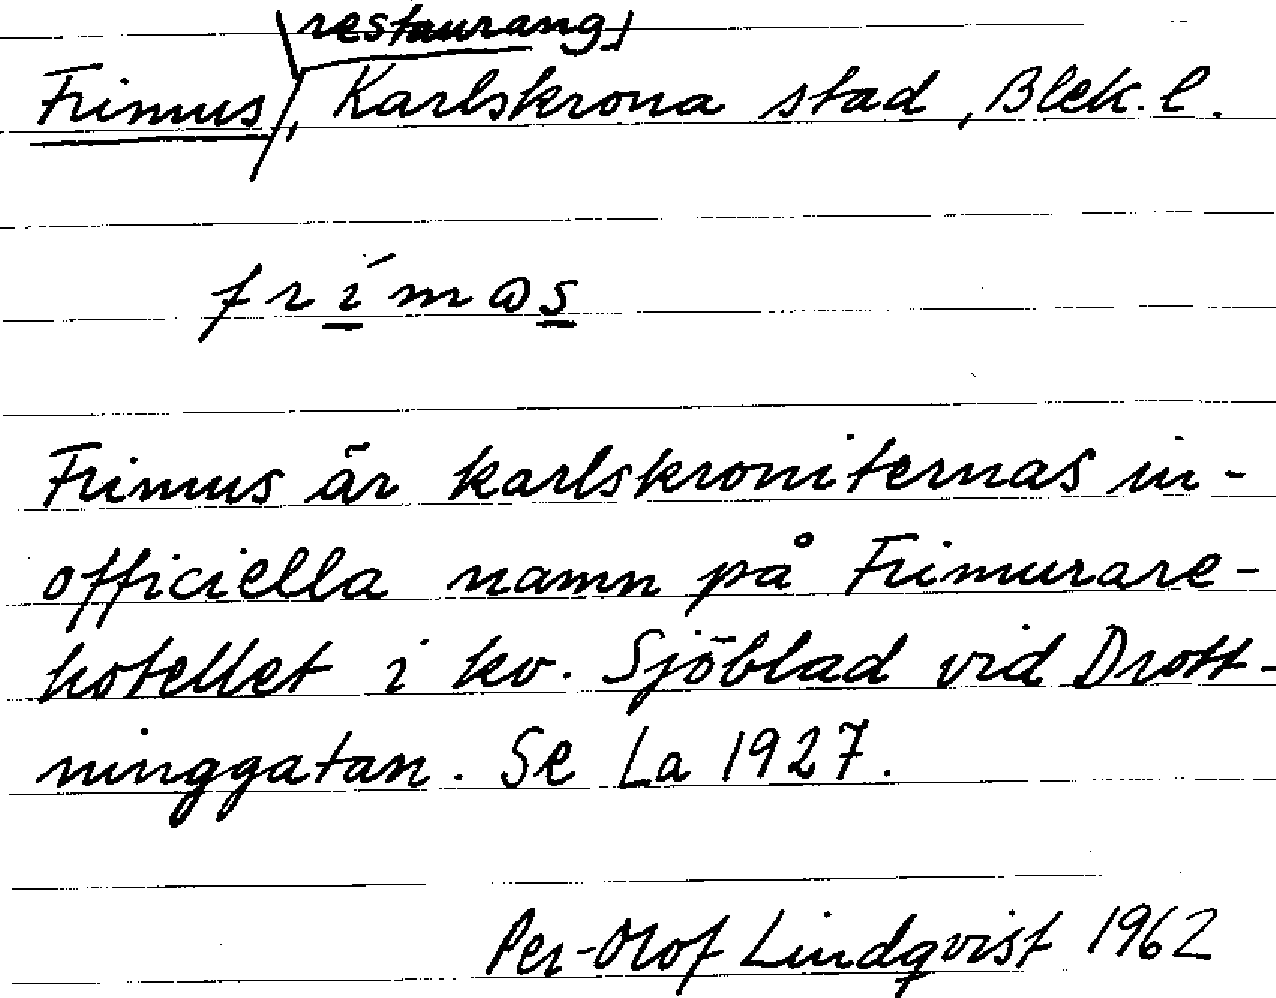 restaurang
Frimus, Karlskrona stad, Blek. l.
frímɷs
Frimus är karlskroniternas in-
officiella namn på Frimurare-
hotellet i kv. Sjöblad vid Drott-
ninggatan. Se La 1927.
Per-Olof Lindqvist 1962